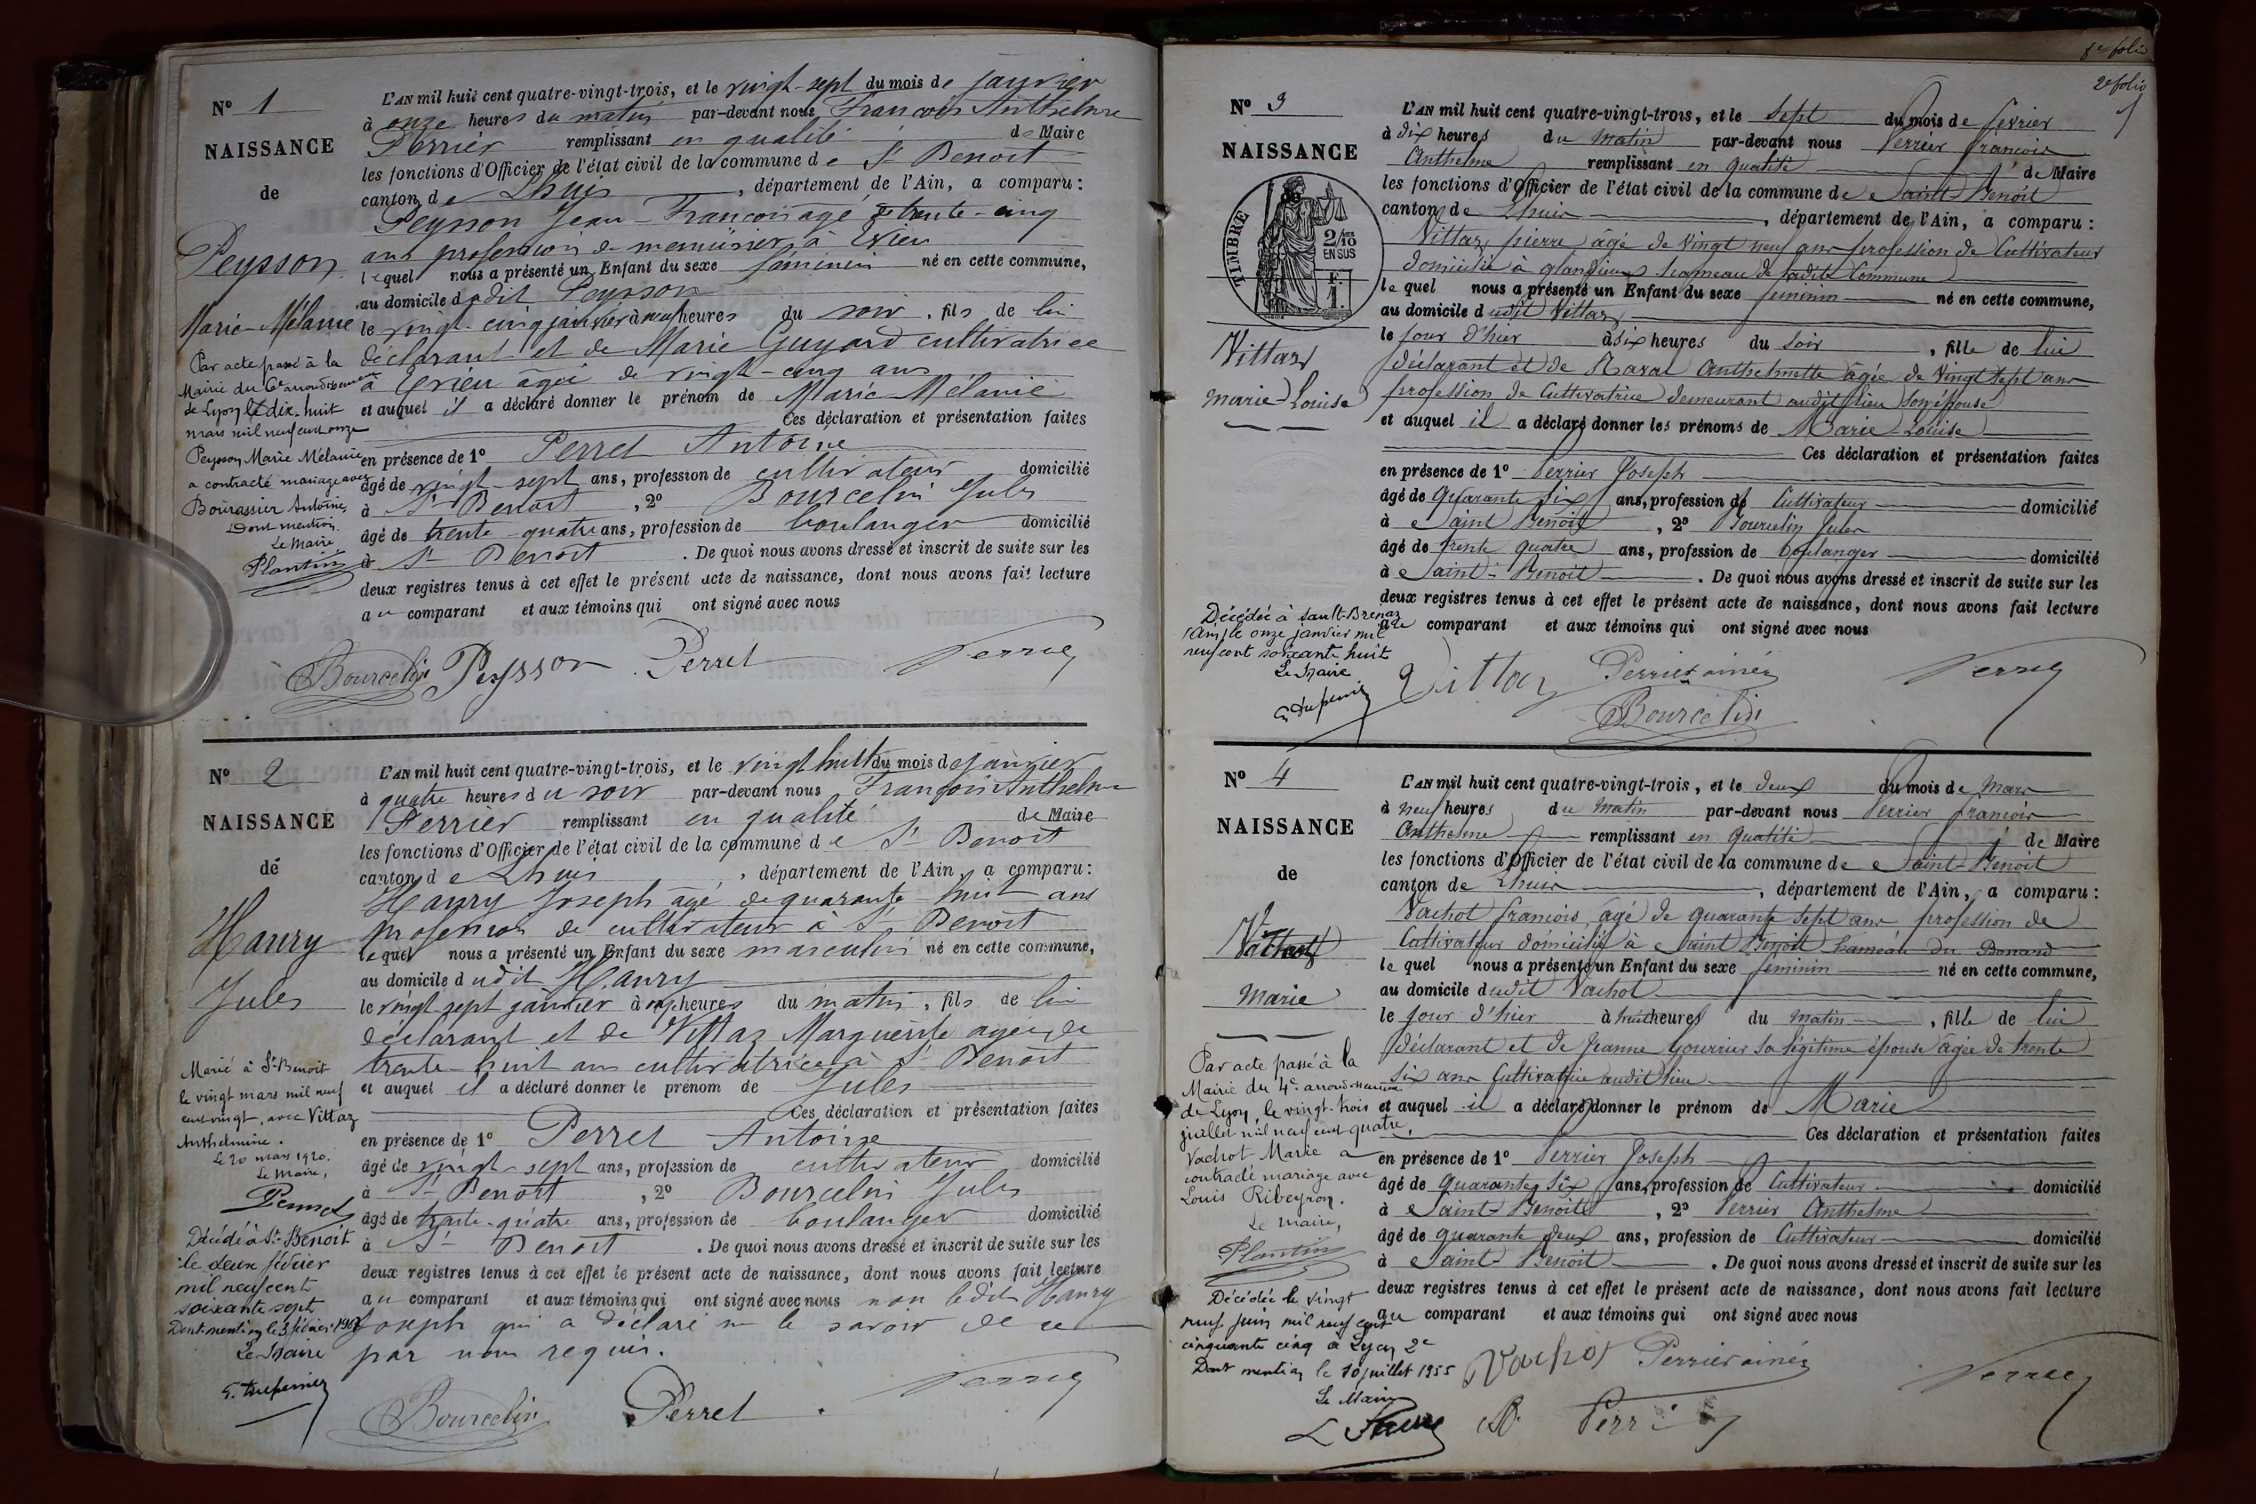 N° 1
NAISSANCE
de
Peysson
Marie-Mélanie
Par acte passé à la
Mairie du 6e arrondissement
de Lyon le dix-huit
mars mil neuf cent onze
Peysson Marie Mélanie
a contracté mariage avec
Bourassier Antoine,
Dont mention.
Le Maire
Plantin
L'AN mil huit cent quatre-vingt-trois, et le vingt-sept du mois de janvier
à onze heures du matin par-devant nous François Anthelme
Perrier remplissant en qualité de Maire
les fonctions d'Officier de l'état civil de la commune de St Benoit
canton de Lhuis, département de l'Ain, a comparu :
Peysson Jean-François agé de trente-cinq
ans profession de menuisier à Evieu
lequel nous a présenté un Enfant du sexe féminin né en cette commune,
au domicile dudit Peysson
le vingt-cinq janvier à neuf heures du soir, fils de lui
déclarant et de Marie Guyard cultivatrice
à Evieu âgée de vingt-cinq ans
et auquel il a déclaré donner le prénom de Marie Mélanie
Ces déclaration et présentation faites
en présence de 1° Perret Antoine
âgé de vingt-sept ans, profession de cultivateur domicilié
à St Benoit, 2° Bourcelin Jules
âgé de trente-quatre ans, profession de boulanger domicilié
à St Benoit. De quoi nous avons dressé et inscrit de suite sur les
deux registres tenus à cet effet le présent acte de naissance, dont nous avons fait lecture
au comparant et aux témoins qui ont signé avec nous
Bourcelin Peysson Perret Perrier
N° 2
NAISSANCE
de
Haury
Jules
Marié à St-Benoit
le vingt mars mil neuf
cent vingt, avec Vittaz
Anthelmine.
Le 20 mars 1920.
Le Maire,
Décédé à St-Benoit
le deux février
mil neuf cent
soixante sept
Dont mention le 3 février 1967
Le Maire
L'AN mil huit cent quatre-vingt-trois, et le vingt huit du mois de janvier
à quatre heures du soir par-devant nous François Anthelme
Perrier remplissant en qualité de Maire
les fonctions d'Officier de l'état civil de la commune de St Benoit
canton de Lhuis, département de l'Ain, a comparu :
Haury Joseph âgé de quarante-huit ans
profession de cultivateur à St Benoit
lequel nous a présenté un Enfant du sexe masculin né en cette commune,
au domicile dudit Haury
le vingt sept janvier à heures du matin, fils de lui
déclarant et de Vittaz Marguerite agée de
trente-huit ans cultivatrice à St Benoit
et auquel il a déclaré donner le prénom de Jules
Ces déclaration et présentation faites
en présence de 1° Perret Antoine
âgé de vingt-sept ans, profession de cultivateur domicilié
à St Benoit, 2° Bourcelin Jules
âgé de trente-quatre ans, profession de boulanger domicilié
à St Benoit. De quoi nous avons dressé et inscrit de suite sur les
deux registres tenus à cet effet le présent acte de naissance, dont nous avons fait lecture
au comparant et aux témoins qui ont signé avec nous non ledit Haury
Joseph qui a déclaré ne le savoir de ce
par nous requis.
Bourcelin Perret Perrier
2e folio
N° 3
NAISSANCE
TIMBRE
2/10
EN SUS
Vittaz
Marie Louise
Décédée à Sault-Brénaz
(Ain) le onze janvier mil
neuf cent soixante huit
Le Maire
L'AN mil huit cent quatre-vingt-trois, et le Sept du mois de février
à dix heures du matin par-devant nous Perrier françois
Anthelme remplissant en qualité de Maire
les fonctions d'Officier de l'état civil de la commune de Saint-Benoit
canton de Lhuis, département de l'Ain, a comparu :
Vittaz pierre âgé de vingt neuf ans profession de Cultivateur
domicilié à glandieu hameau de ladite Commune
lequel nous a présenté un Enfant du sexe féminin né en cette commune,
au domicile dudit Vittaz
le jour d'hier à six heures du soir, fille de lui
déclarant et de Anthelmette âgée de vingt sept ans
profession de Cultivatrice demeurant audit lieu son épouse
et auquel il a déclaré donner les prénoms de Marie Louise
Ces déclaration et présentation faites
en présence de 1° Perrier Joseph
âgé de quarante six ans, profession de Cultivateur domicilié
à Saint Benoit, 2° Bourcelin Jules
âgé de trente quatre ans, profession de boulanger domicilié
à Saint-Benoit. De quoi nous avons dressé et inscrit de suite sur les
deux registres tenus à cet effet le présent acte de naissance, dont nous avons fait lecture
au comparant et aux témoins qui ont signé avec nous
Vittaz Perrier ainé Perrier
Bourcelin
N° 4
NAISSANCE
de
Vachot
Marie
Par acte passé à la
Mairie du 4e arrondissement
de Lyon, le vingt-trois
juillet mil neuf cent quatre,
Vachot Marie a
contracté mariage avec
Louis Ribeyron.
Le Maire,
Plantin
Décédée le vingt
neuf juin mil neuf cent
cinquante cinq à Lyon 2e
Dont mention le 10 juillet 1955
Le Maire
L'AN mil huit cent quatre-vingt-trois, et le deux du mois de Mars
à neuf heures du matin par-devant nous Perrier françois
Anthelme remplissant en qualité de Maire
les fonctions d'Officier de l'état civil de la commune de Saint-Benoit
canton de Lhuis, département de l'Ain, a comparu :
Vachot françois âgé de quarante sept ans profession de
Cultivateur domicilié à Saint Benoit hameau du
lequel nous a présenté un Enfant du sexe féminin né en cette commune,
au domicile dudit Vachot
le jour d'hier à huit heures du matin, fille de lui
déclarant et de Jeanne Gourrier sa légitime épouse agée de trente
six ans Cultivatrice audit lieu
et auquel il a déclaré donner le prénom de Marie
Ces déclaration et présentation faites
en présence de 1° Perrier Joseph
âgé de quarante six ans, profession de Cultivateur domicilié
à Saint-Benoit, 2° Perrier Anthelme
âgé de quarante deux ans, profession de Cultivateur domicilié
à Saint-Benoit. De quoi nous avons dressé et inscrit de suite sur les
deux registres tenus à cet effet le présent acte de naissance, dont nous avons fait lecture
au comparant et aux témoins qui ont signé avec nous
Vachot Perrier ainé Perrier